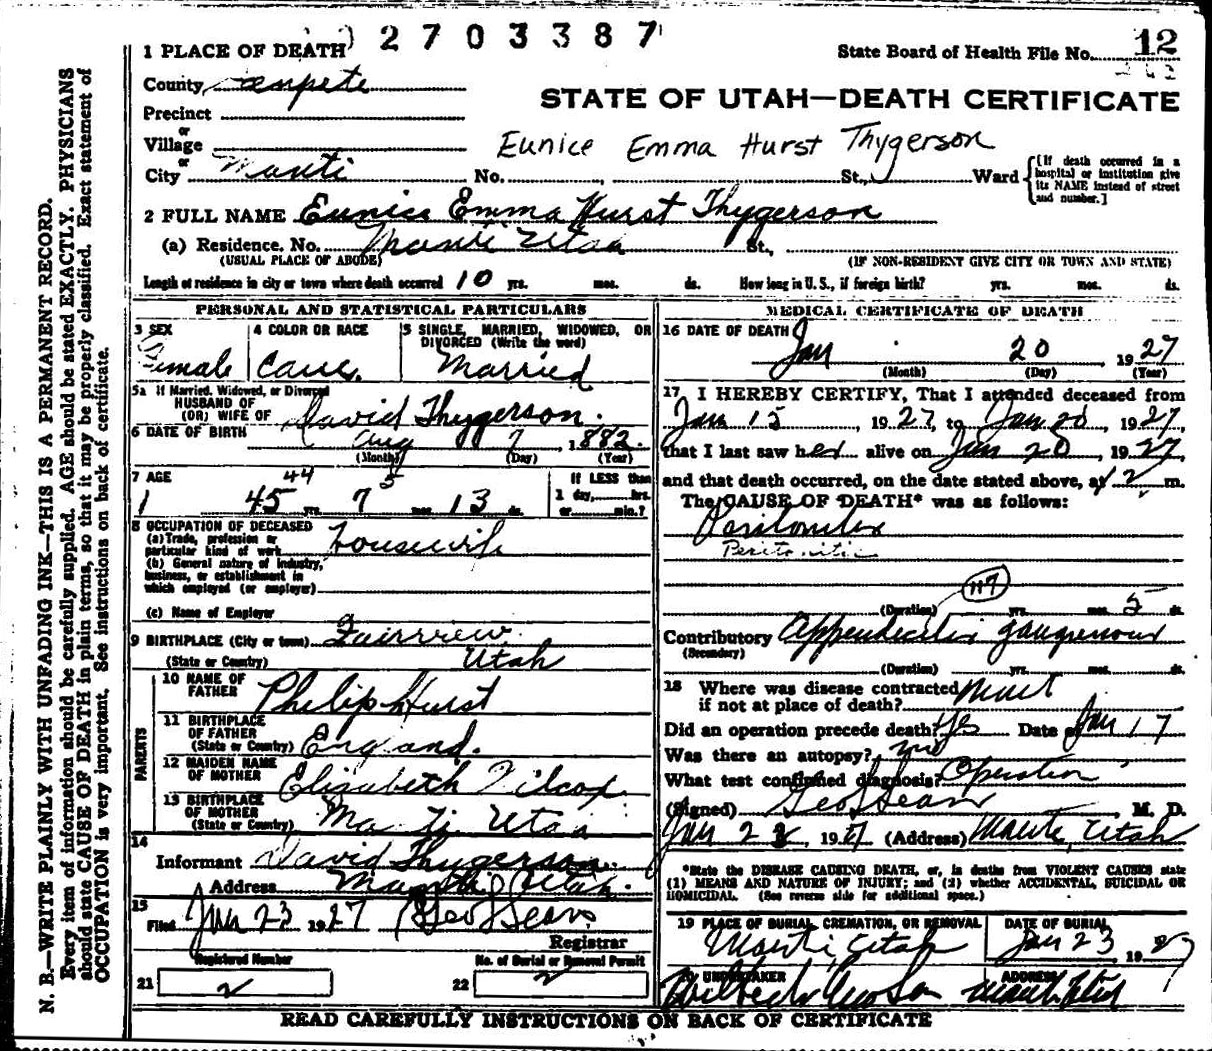 2703387
1 PLACE OF DEATH
State Board of Health File No. 12
County Sanpete
STATE OF UTAH—DEATH CERTIFICATE
Precinct
or
Village
Eunice Emma Hurst Thygerson
or
City Manti No. St., Ward
[If death occurred in a hospital or institution give its NAME instead of street and number.]
2 FULL NAME Eunice Emma Hurst Thygerson
(a) Residence. No. Manti Utah St.,
(USUAL PLACE OF ABODE) (IF NON-RESIDENT GIVE CITY OR TOWN AND STATE)
Length of residence in city or town where death occurred 10 yrs. mos. ds. How long in U.S., if foreign birth? yrs. mos. ds.
PERSONAL AND STATISTICAL PARTICULARS
3 SEX 4 COLOR OR RACE 5 SINGLE, MARRIED, WIDOWED, OR DIVORCED (Write the word)
Female Cauc. Married
5a If Married, Widowed, or Divorced
HUSBAND OF
(OR) WIFE OF David Thygerson.
6 DATE OF BIRTH Aug 7, 1882.
(Month) (Day) (Year)
7 AGE 44 5
45 yrs. 7 mos. 13 ds.
If LESS than 1 day, hrs. or min.?
8 OCCUPATION OF DECEASED
(a) Trade, profession or particular kind of work Housewife
(b) General nature of industry, business, or establishment in which employed (or employer)
(c) Name of Employer
9 BIRTHPLACE (City or town) Fairview
(State or Country) Utah
PARENTS
10 NAME OF FATHER Philip Hurst
11 BIRTHPLACE OF FATHER (State or Country) England.
12 MAIDEN NAME OF MOTHER Elizabeth Wilcox
13 BIRTHPLACE OF MOTHER (State or Country) Manti Utah
14
Informant David Thygerson.
Address Manti Utah.
15
Filed Jan 23 1927 Geo Sears
Registrar
Registered Number No. of Burial or Removal Permit
21 2 22 2
MEDICAL CERTIFICATE OF DEATH
16 DATE OF DEATH
Jan 20, 1927
(Month) (Day) (Year)
17 I HEREBY CERTIFY, That I attended deceased from
Jan 15, 1927, to Jan 20, 1927,
that I last saw her alive on Jan 20, 1927,
and that death occurred, on the date stated above, at 12 m.
The CAUSE OF DEATH* was as follows:
Peritonitis
Peritonitis
117
(Duration) yrs. mos. 5 ds.
Contributory Appendicitis gangrenous
(Secondary)
(Duration) yrs. mos. ds.
18 Where was disease contracted
if not at place of death? Manti
Did an operation precede death? Yes Date of Jan 17
Was there an autopsy? no
What test confirmed diagnosis? Operation
(Signed) Geo Sears M. D.
Jan 22, 1927 (Address) Manti, Utah
*State the DISEASE CAUSING DEATH, or, in deaths from VIOLENT CAUSES state
(1) MEANS AND NATURE OF INJURY; and (2) whether ACCIDENTAL, SUICIDAL OR
HOMICIDAL. (See reverse side for additional space.)
19 PLACE OF BURIAL, CREMATION, OR REMOVAL DATE OF BURIAL
Manti Utah Jan 23 1927
20 UNDERTAKER ADDRESS
Manti Utah
READ CAREFULLY INSTRUCTIONS ON BACK OF CERTIFICATE
N. B.—WRITE PLAINLY WITH UNFADING INK—THIS IS A PERMANENT RECORD.
Every item of information should be carefully supplied. AGE should be stated EXACTLY. PHYSICIANS
should state CAUSE OF DEATH in plain terms, so that it may be properly classified. Exact statement of
OCCUPATION is very important. See instructions on back of certificate.